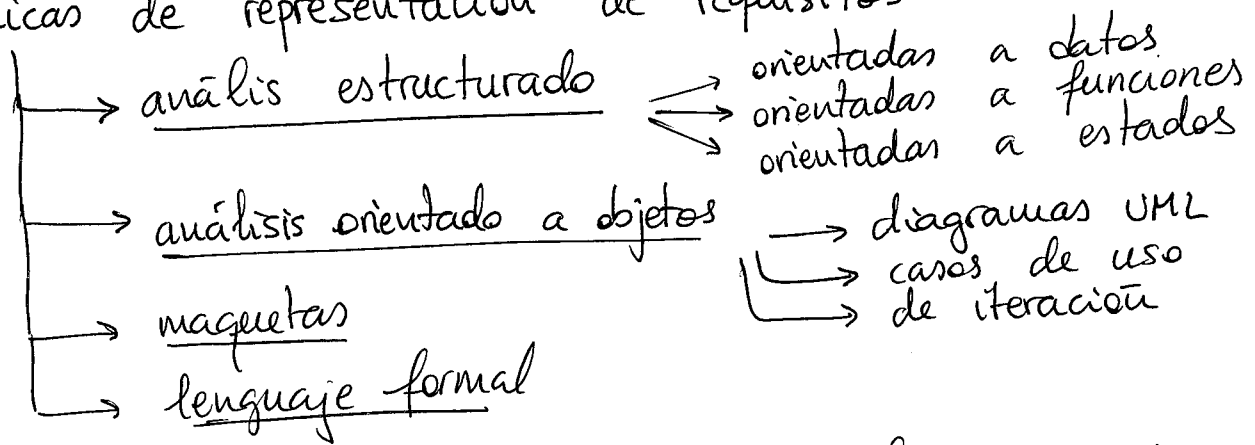 icas de representación de requisitos
anális estructurado
orientadas a datos
orientadas a funciones
orientadas a estados
análisis orientado a objetos
diagramas UML
casos de uso
de iteración
maquetas
lenguaje formal